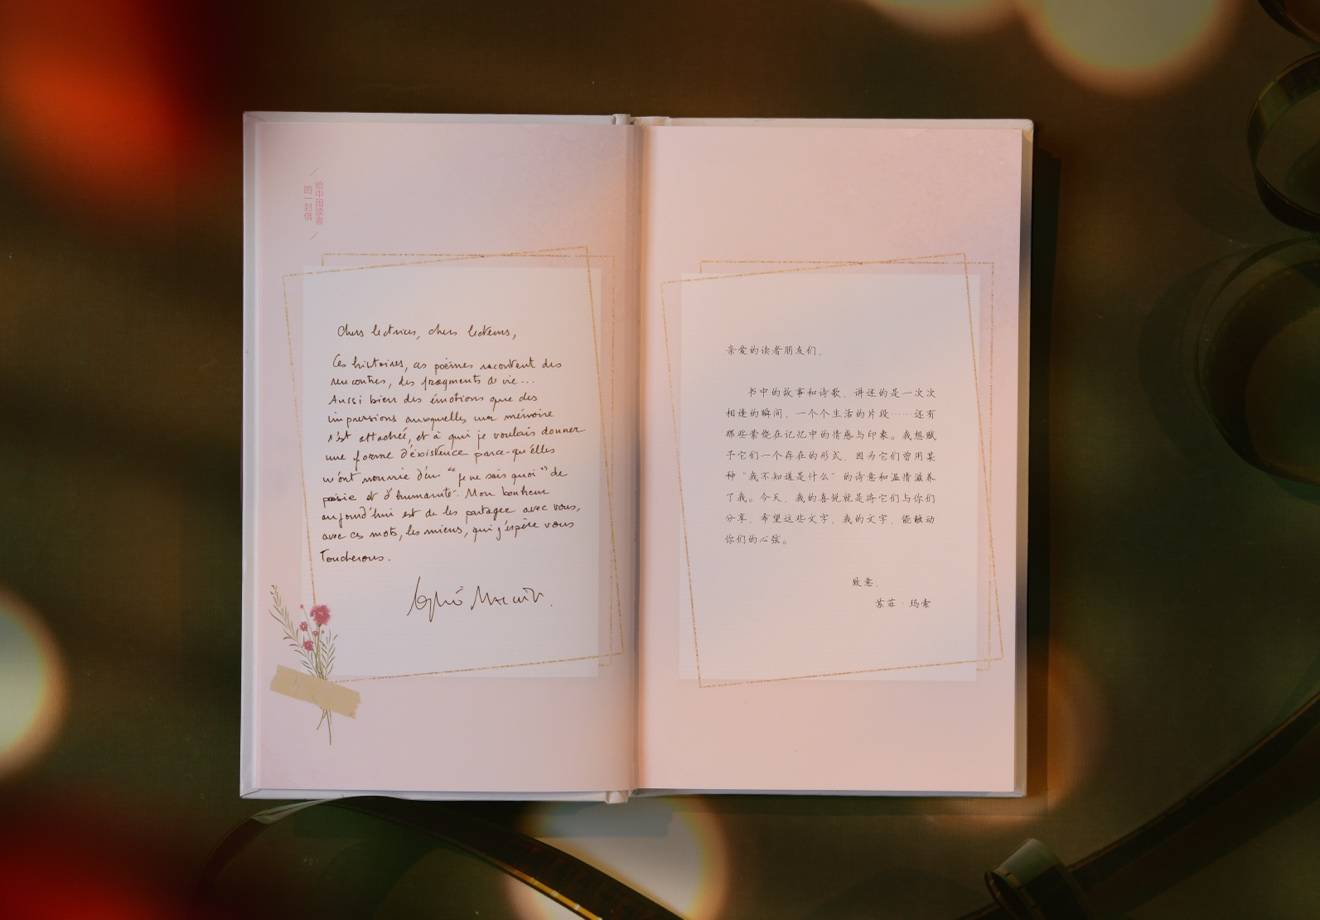 给中国读者
的一封信
Chers lectrices, chers lecteurs,
Ces histoires, ces poèmes racontent des
rencontres, des fragments de vie...
Aussi bien des émotions que des
impressions auxquelles ma mémoire
s'est attachée, et à qui je voulais donner
une forme d'existence parce qu'elles
m'ont nourrie d'un "je ne sais quoi" de
poésie et d'humanité. Mon bonheur
aujourd'hui est de les partager avec vous,
avec ces mots, les miens, qui j'espère vous
Toucherons.
亲爱的读者朋友们，
书中的故事和诗歌，讲述的是一次次
相逢的瞬间，一个个生活的片段……还有
那些萦绕在记忆中的情感与印象。我想赋
予它们一个存在的形式，因为它们曾用某
种“我不知道是什么”的诗意和温情滋养
了我。今天，我的喜悦就是将它们与你们
分享，希望这些文字，我的文字，能触动
你们的心弦。
致意，
苏菲·玛索